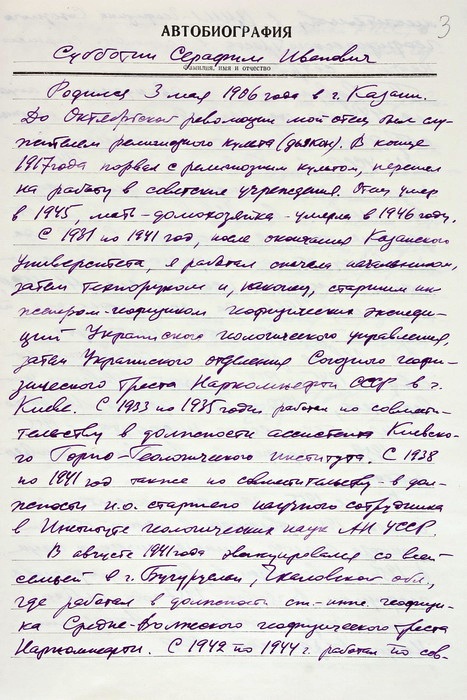 3
АВТОБИОГРАФИЯ
Субботин Серафим Иванович
фамилия, имя и отчество
Родился 3 мая 1906 года в г. Казани.
До Октябрьской революции мой отец был слу-
жителем религиозного культа (дьякон). В конце
1917 года порвал с религиозным культом, перешел
на работу в советские учреждения. Отец умер
в 1945, мать - домохозяйка - умерла в 1946 году.
С 1931 по 1941 год, после окончания Казанского
Университета, я работал сначала начальником,
затем техноруком и, наконец, старшим ин-
женером-геофизиком геофизических экспеди-
ций Украинского геологического управления,
затем Украинского отделения Союзного геофи-
зического треста Наркомнефти СССР в г.
Киеве. С 1933 по 1935 годы работал по совмести-
тельству в должности ассистента Киевско-
го Горно-Геологического института. С 1938
по 1941 год также по совместительству - в дол-
жности и.о. старшего научного сотрудника
в Институте геологических наук АН УССР.
В августе 1941 года эвакуировался со всей
семьей в г. Бугуруслан, Чкаловской обл.,
где работал в должности ст.-инж. геофизи-
ка Средне-Волжского геофизического треста
Наркомнефти. С 1942 по 1944 г. работал по сов-